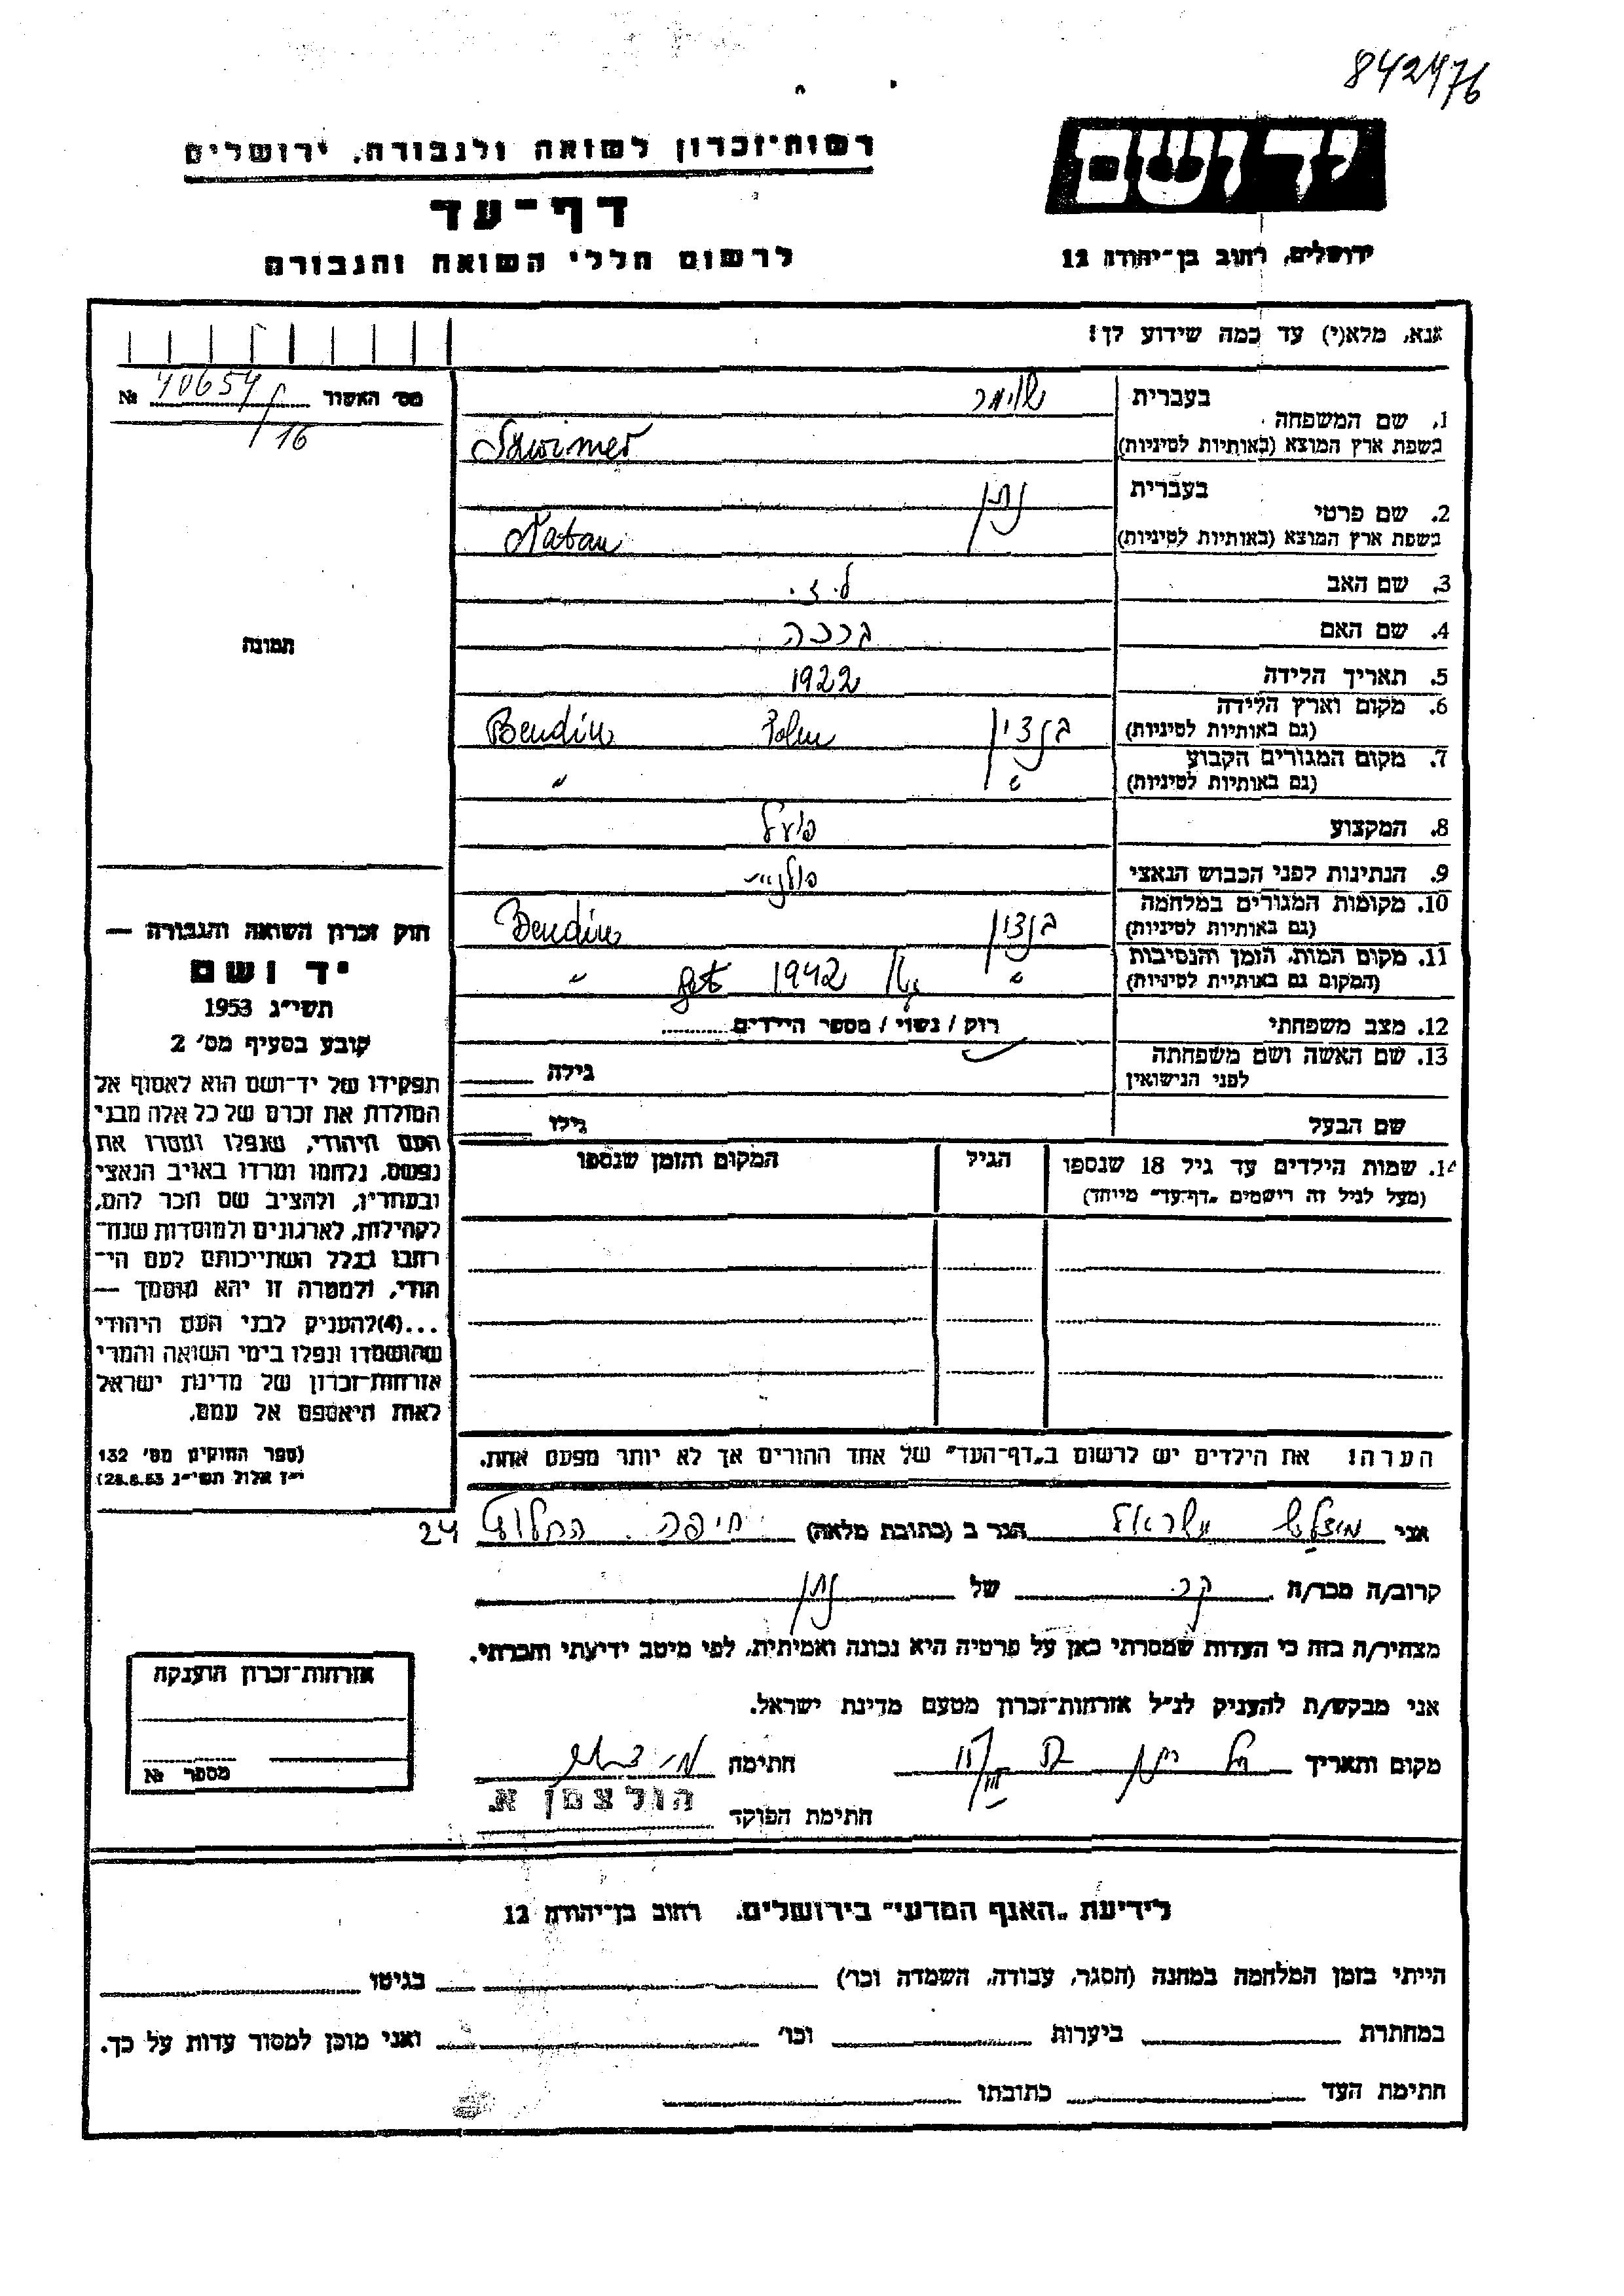 842476
יד ושם
רשות-זכרון לשואה ולגבורה, ירושלים
דף-עד
לרשום חללי השואה והגבורה
ירושלים, רחוב בן-יהודה 12
אנא, מלא(י) עד כמה שידוע לך!
מס׳ האשור № 40654/16
1. שם המשפחה בעברית
בשפת ארץ המוצא (באותיות לטיניות)
2. שם פרטי בעברית נתן
בשפת ארץ המוצא (באותיות לטיניות) Natan
3. שם האב
4. שם האם ברכה
5. תאריך הלידה 1922
6. מקום וארץ הלידה (גם באותיות לטיניות) בנדין Polen Bendin
7. מקום המגורים הקבוע (גם באותיות לטיניות) " "
8. המקצוע פועל
9. הנתינות לפני הכבוש הנאצי פולנית
10. מקומות המגורים במלחמה (גם באותיות לטיניות) בנדין Bendin
11. מקום המות, הזמן והנסיבות (המקום גם באותיות לטיניות) " 1942 "
12. מצב משפחתי רוק / נשוי / מספר הילדים
13. שם האשה ושם משפחתה לפני הנישואין גילה
שם הבעל גילו
14. שמות הילדים עד גיל 18 שנספו (מעל לגיל זה רישמים "דף-עד" מייחד) הגיל המקום והזמן שנספו
הערה! את הילדים יש לרשום ב"דף-העד" של אחד ההורים אך לא יותר מפעם אחת.
תמונה
חוק זכרון השואה והגבורה —
יד ושם
תשי״ג 1953
קובע בסעיף מס׳ 2
תפקידו של יד-ושם הוא לאסוף אל
המולדת את זכרם של כל אלה מבני
העם היהודי, שנפלו ומסרו את
נפשם, נלחמו ומרדו באויב הנאצי
ובעוזריו, ולהציב שם וזכר להם,
לקהילות, לארגונים ולמוסדות שנח־
רבו בגלל השתייכותם לעם הי־
הודי, ולמטרה זו יהא מוסמך —
...(4)להעניק לבני העם היהודי
שהושמדו ונפלו בימי השואה והמרי
אזרחות-זכרון של מדינת ישראל
לאות היאספם אל עמם.
(ספר החוקים מס׳ 132
י״ז אלול תשי״ג 28.8.53)
אני ישראל הגר ב (כתובת מלאה) חיפה. החלוץ 24
קרוב/ה מכר/ה קר. של נתן
מצהיר/ה בזה כי העדות שמסרתי כאן על פרטיה היא נכונה ואמיתית, לפי מיטב ידיעתי והכרתי.
אני מבקש/ת להעניק לנ״ל אזרחות-זכרון מטעם מדינת ישראל.
מקום ותאריך חתימה
חתימת הפוקד הולצמן א.
אזרחות-זכרון הוענקה
מספר №
לידיעת "האגף המדעי" בירושלים, רחוב בן-יהודה 12
הייתי בזמן המלחמה במחנה (הסגר, עבודה, השמדה וכו׳) בגיטו
במחתרת ביערות וכו׳ ואני מוכן למסור עדות על כך.
חתימת העד כתובתו